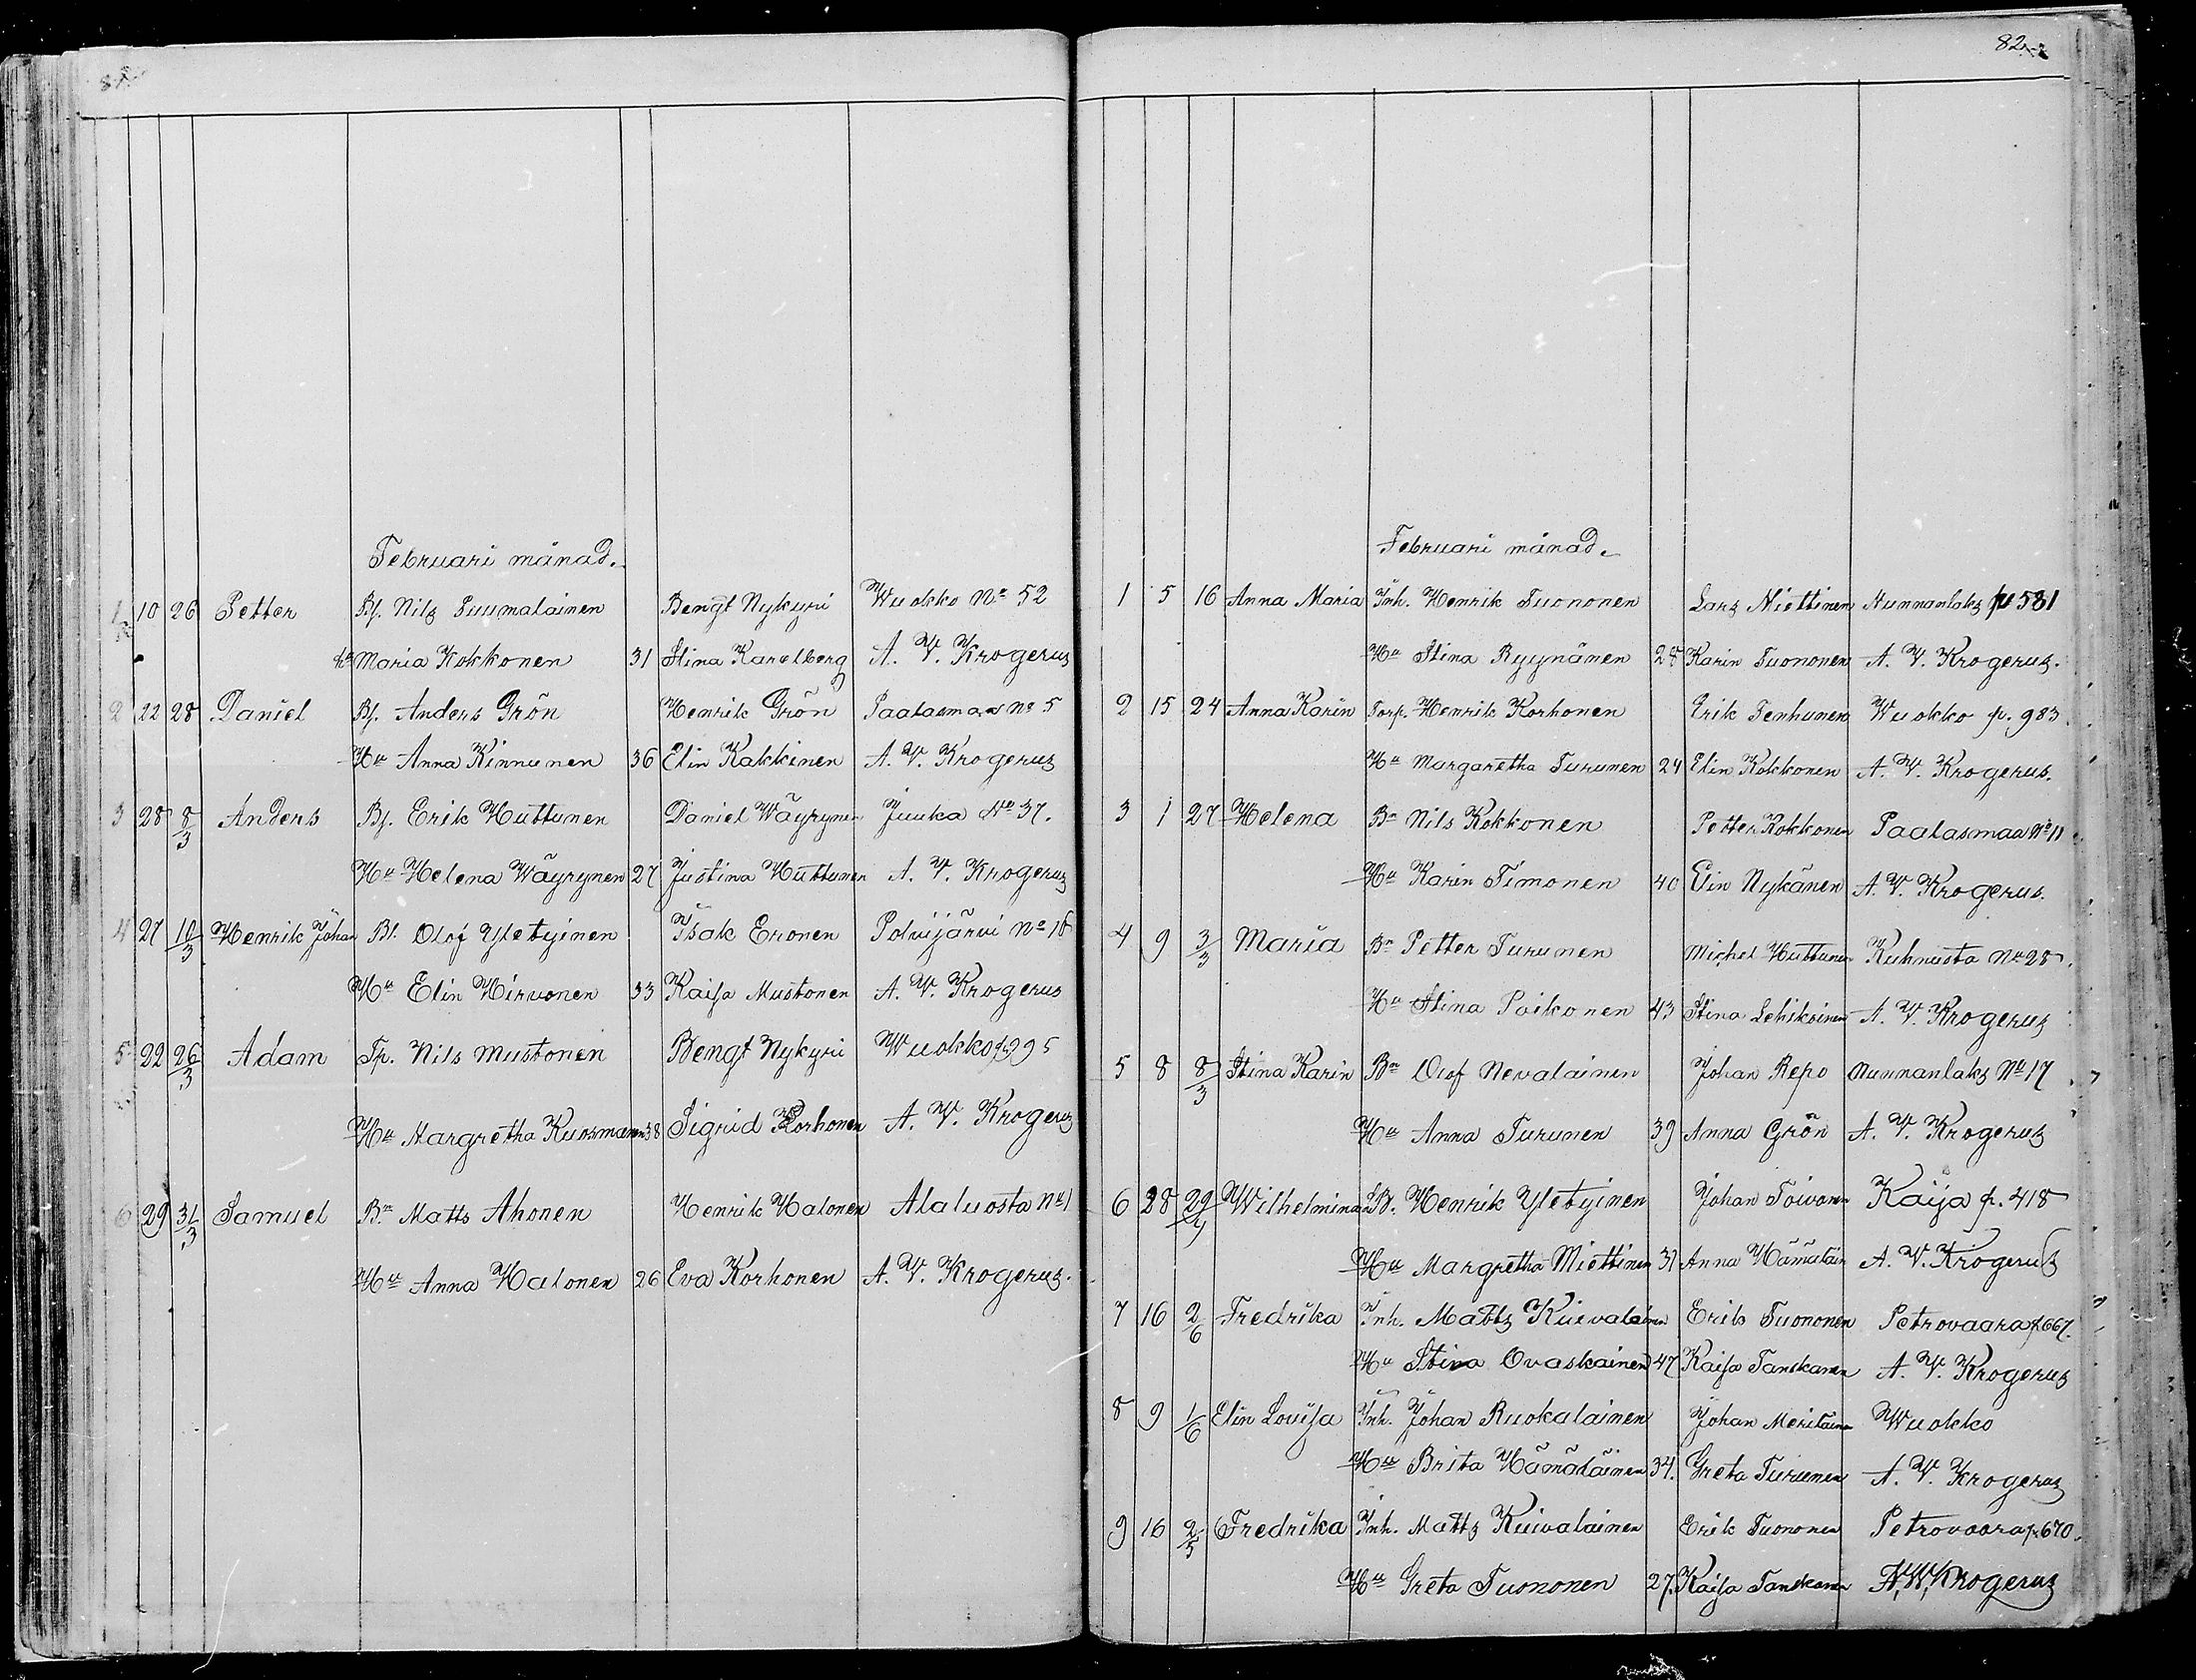 Februari månad.
1 10 26 Petter Bf. Nils Puumalainen Bengt Nykyri Wuokko No 52
h. Maria Kokkonen 31 Stina Karelberg A. V. Krogerus
2 22 28 Daniel Bf. Anders Grön Henrik Grön Paalasmaa No 5
Hu Anna Kinnunen 36 Elin Kakkinen A. V. Krogerus
3 28 8/3 Anders Bf. Erik Huttunen Daniel Wäyrynen Juuka No 37.
Hu Helena Wäyrynen 27 Justina Huttunen A. V. Krogerus
4 27 10/3 Henrik Johan Bf. Olof Yletyinen Isak Eronen Polvijärvi No 18
Hu Elin Hirvonen 33 Kaisa Mustonen A. V. Krogerus
5 22 26/3 Adam Tp. Nils Mustonen Bengt Nykyri Wuokko p. 295
Hu Margretha Kuosmanen 38 Sigrid Korhonen A. V. Krogerus
6 29 31/3 Samuel Bn Matts Ahonen Henrik Halonen Alaluosta No 1
Hu Anna Halonen 26 Eva Korhonen A. V. Krogerus.
82
Februari månad.
1 5 16 Anna Maria Inh. Henrik Tuononen Lars Miettinen Nunnanlaks p 581
Hu Stina Ryynänen 28 Karin Tuononen A. V. Krogerus.
2 15 24 Anna Karin Torp. Henrik Korhonen Erik Tenhunen Wuokko p. 983.
Hu Margaretha Turunen 24 Elin Kokkonen A. V. Krogerus.
3 1 27 Helena Bn Nils Kokkonen Petter Kokkonen Paalasmaa No 11
Hu Karin Timonen 40 Elin Nykänen A. V. Krogerus.
4 9 3/3 Maria Bn Petter Turunen Michel Huttunen Kuhnusta No 28.
Hu Stina Poikonen 43 Stina Lehikoinen A. V. Krogerus
5 8 8/3 Stina Karin Bn Olof Nevalainen Johan Repo Nunnanlaks No 17
Hu Anna Turunen 39 Anna Grön A. V. Krogerus
6 28 29/4 Wilhelmina Henrik Yletyinen Johan Toivonen Kaija p. 418
Hu Margretha Miettinen 31 Anna Hämäläin A. V. Krogerus
7 16 2/6 Fredrika Inh. Matts Kuivalainen Erik Tuononen Petrovaara p. 667.
Hu Stina Ovaskainen 47 Kaisa Tanskanen A. V. Krogerus
8 9 1/6 Elin Lovisa Inh. Johan Ruokalainen Johan Meriläinen Wuokko
Hu Brita Hämäläinen 34. Greta Turunen A. V. Krogerus
9 16 2/5 Fredrika Inh. Matts Kuivalainen Erik Tuononen Petrovaara p. 670.
Hu Greta Tuononen 27. Kaisa Tanskanen A. W. Krogerus